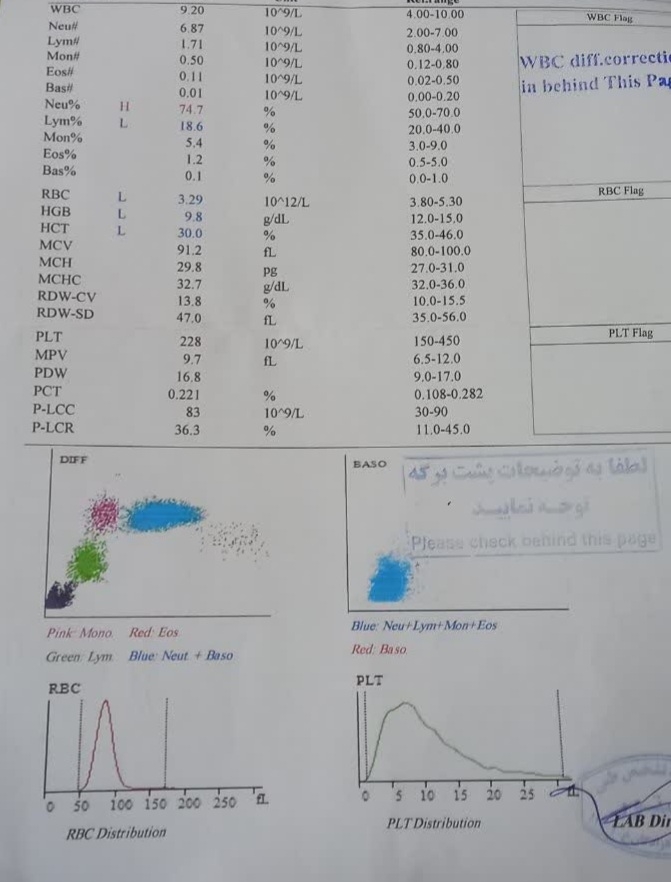 WBC 9.20 10^9/L 4.00-10.00
Neu# 6.87 10^9/L 2.00-7.00
Lym# 1.71 10^9/L 0.80-4.00
Mon# 0.50 10^9/L 0.12-0.80
Eos# 0.11 10^9/L 0.02-0.50
Bas# 0.01 10^9/L 0.00-0.20
Neu% H 74.7 % 50.0-70.0
Lym% L 18.6 % 20.0-40.0
Mon% 5.4 % 3.0-9.0
Eos% 1.2 % 0.5-5.0
Bas% 0.1 % 0.0-1.0
WBC Flag
WBC diff.correcti
in behind This Pag
RBC L 3.29 10^12/L 3.80-5.30
HGB L 9.8 g/dL 12.0-15.0
HCT L 30.0 % 35.0-46.0
MCV 91.2 fL 80.0-100.0
MCH 29.8 pg 27.0-31.0
MCHC 32.7 g/dL 32.0-36.0
RDW-CV 13.8 % 10.0-15.5
RDW-SD 47.0 fL 35.0-56.0
RBC Flag
PLT 228 10^9/L 150-450
MPV 9.7 fL 6.5-12.0
PDW 16.8 9.0-17.0
PCT 0.221 % 0.108-0.282
P-LCC 83 10^9/L 30-90
P-LCR 36.3 % 11.0-45.0
PLT Flag
DIFF
BASO
لطفا به توضیحات پشت برگه
توجه نمایید
Please check behind this page
Pink: Mono. Red: Eos
Green: Lym. Blue: Neut + Baso
Blue: Neu+Lym+Mon+Eos
Red: Baso
RBC
0 50 100 150 200 250 fL
RBC Distribution
PLT
0 5 10 15 20 25 fL
PLT Distribution
LAB Dir